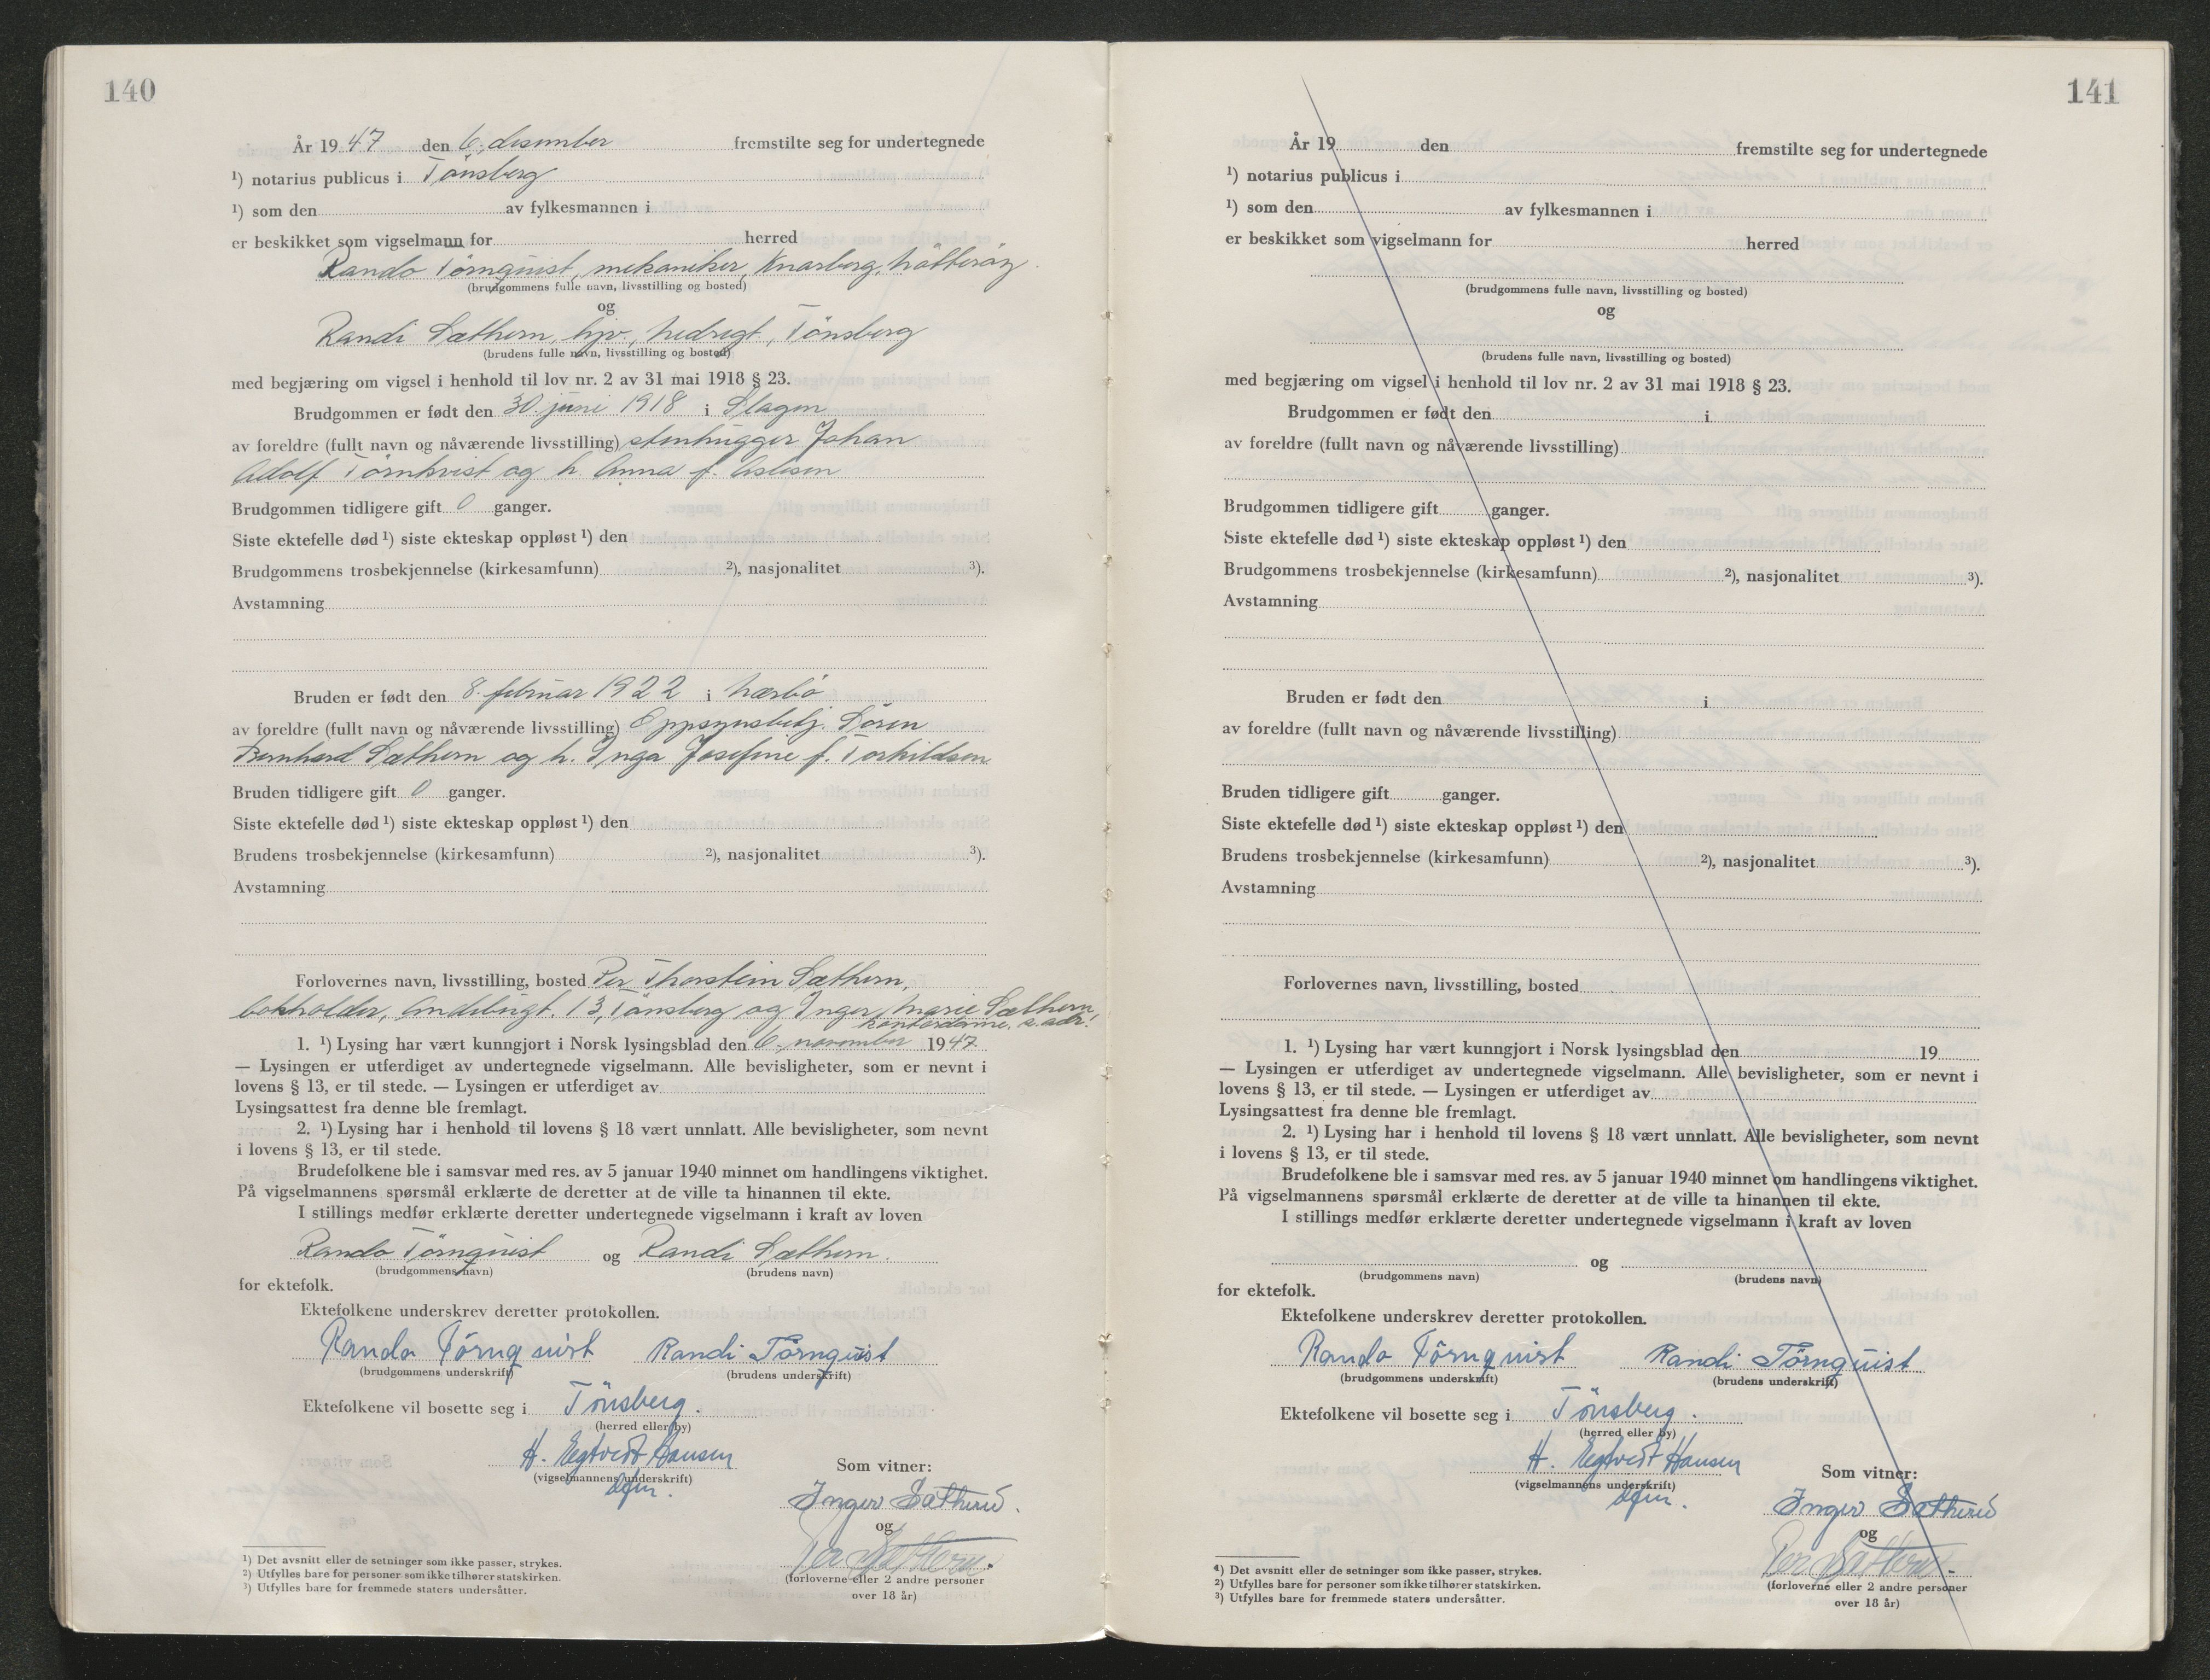 140
År 1947 den 6. desember fremstilte seg for undertegnede
¹) notarius publicus i Tönsberg
¹) som den av fylkesmannen i
er beskikket som vigselmann for herred
Rando Törnquist, mekaniker, Knarberg, Nötteröy
(brudgommens fulle navn, livsstilling og bosted)
og
Randi Sæthern, hjv., Tönsberg
(brudens fulle navn, livsstilling og bosted)
med begjæring om vigsel i henhold til lov nr. 2 av 31 mai 1918 § 23.
Brudgommen er født den 30. juni 1918 i Slagen
av foreldre (fullt navn og nåværende livsstilling) stenhugger Johan
Adolf Törnkvist og h. Anna f. Aslesen
Brudgommen tidligere gift 0 ganger.
Siste ektefelle død ¹) siste ekteskap oppløst ¹) den
Brudgommens trosbekjennelse (kirkesamfunn) ²), nasjonalitet ³).
Avstamning
Bruden er født den 8. februar 1922 i Nærbö
av foreldre (fullt navn og nåværende livsstilling) Oppsynsbetj. Sören
Bernhard Sæthern og h. Inga Josefine f. Torkildsen
Bruden tidligere gift 0 ganger.
Siste ektefelle død ¹) siste ekteskap oppløst ¹) den
Brudens trosbekjennelse (kirkesamfunn) ²), nasjonalitet ³).
Avstamning
Forlovernes navn, livsstilling, bosted Per Thorstein Sæthern,
bokholder, 13, Tönsberg og Inger Marie Sæthern,
kontordame, s. adr.
1. ¹) Lysing har vært kunngjort i Norsk lysingsblad den 6. november 1947
— Lysingen er utferdiget av undertegnede vigselmann. Alle bevisligheter, som er nevnt i
lovens § 13, er til stede. — Lysingen er utferdiget av
Lysingsattest fra denne ble fremlagt.
2. ¹) Lysing har i henhold til lovens § 18 vært unnlatt. Alle bevisligheter, som nevnt
i lovens § 13, er til stede.
Brudefolkene ble i samsvar med res. av 5 januar 1940 minnet om handlingens viktighet.
På vigselmannens spørsmål erklærte de deretter at de ville ta hinannen til ekte.
I stillings medfør erklærte deretter undertegnede vigselmann i kraft av loven
Rando Törnquist og Randi Sæthern.
(brudgommens navn) (brudens navn)
for ektefolk.
Ektefolkene underskrev deretter protokollen.
Rando Törnquist Randi Törnquist
(brudgommens underskrift) (brudens underskrift)
Ektefolkene vil bosette seg i Tönsberg.
(herred eller by)
H. Egtvedt Hansen
(vigselmannens underskrift)
dfm.
Som vitner:
Inger Sæthern
og
Per Sæthern.
(forloverne eller 2 andre personer
over 18 år)
¹) Det avsnitt eller de setninger som ikke passer, strykes.
²) Utfylles bare for personer som ikke tilhører statskirken.
³) Utfylles bare for fremmede staters undersåtter.
141
År 19 den fremstilte seg for undertegnede
¹) notarius publicus i
¹) som den av fylkesmannen i
er beskikket som vigselmann for herred
(brudgommens fulle navn, livsstilling og bosted)
og
(brudens fulle navn, livsstilling og bosted)
med begjæring om vigsel i henhold til lov nr. 2 av 31 mai 1918 § 23.
Brudgommen er født den i
av foreldre (fullt navn og nåværende livsstilling)
Brudgommen tidligere gift ganger.
Siste ektefelle død ¹) siste ekteskap oppløst ¹) den
Brudgommens trosbekjennelse (kirkesamfunn) ²), nasjonalitet ³).
Avstamning
Bruden er født den i
av foreldre (fullt navn og nåværende livsstilling)
Bruden tidligere gift ganger.
Siste ektefelle død ¹) siste ekteskap oppløst ¹) den
Brudens trosbekjennelse (kirkesamfunn) ²), nasjonalitet ³).
Avstamning
Forlovernes navn, livsstilling, bosted
1. ¹) Lysing har vært kunngjort i Norsk lysingsblad den 19
— Lysingen er utferdiget av undertegnede vigselmann. Alle bevisligheter, som er nevnt i
lovens § 13, er til stede. — Lysingen er utferdiget av
Lysingsattest fra denne ble fremlagt.
2. ¹) Lysing har i henhold til lovens § 18 vært unnlatt. Alle bevisligheter, som nevnt
i lovens § 13, er til stede.
Brudefolkene ble i samsvar med res. av 5 januar 1940 minnet om handlingens viktighet.
På vigselmannens spørsmål erklærte de deretter at de ville ta hinannen til ekte.
I stillings medfør erklærte deretter undertegnede vigselmann i kraft av loven
og
(brudgommens navn) (brudens navn)
for ektefolk.
Ektefolkene underskrev deretter protokollen.
Rando Törnquist Randi Törnquist
(brudgommens underskrift) (brudens underskrift)
Ektefolkene vil bosette seg i Tönsberg.
(herred eller by)
H. Egtvedt Hansen
(vigselmannens underskrift)
dfm.
Som vitner:
Inger Sæthern
og
Per Sæthern.
(forloverne eller 2 andre personer
over 18 år)
¹) Det avsnitt eller de setninger som ikke passer, strykes.
²) Utfylles bare for personer som ikke tilhører statskirken.
³) Utfylles bare for fremmede staters undersåtter.